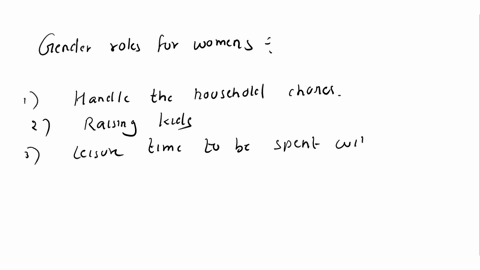 Gender roles for womens :-
1) Handle the household chores.
2) Raising kids
3) Leisure time to be spent wi